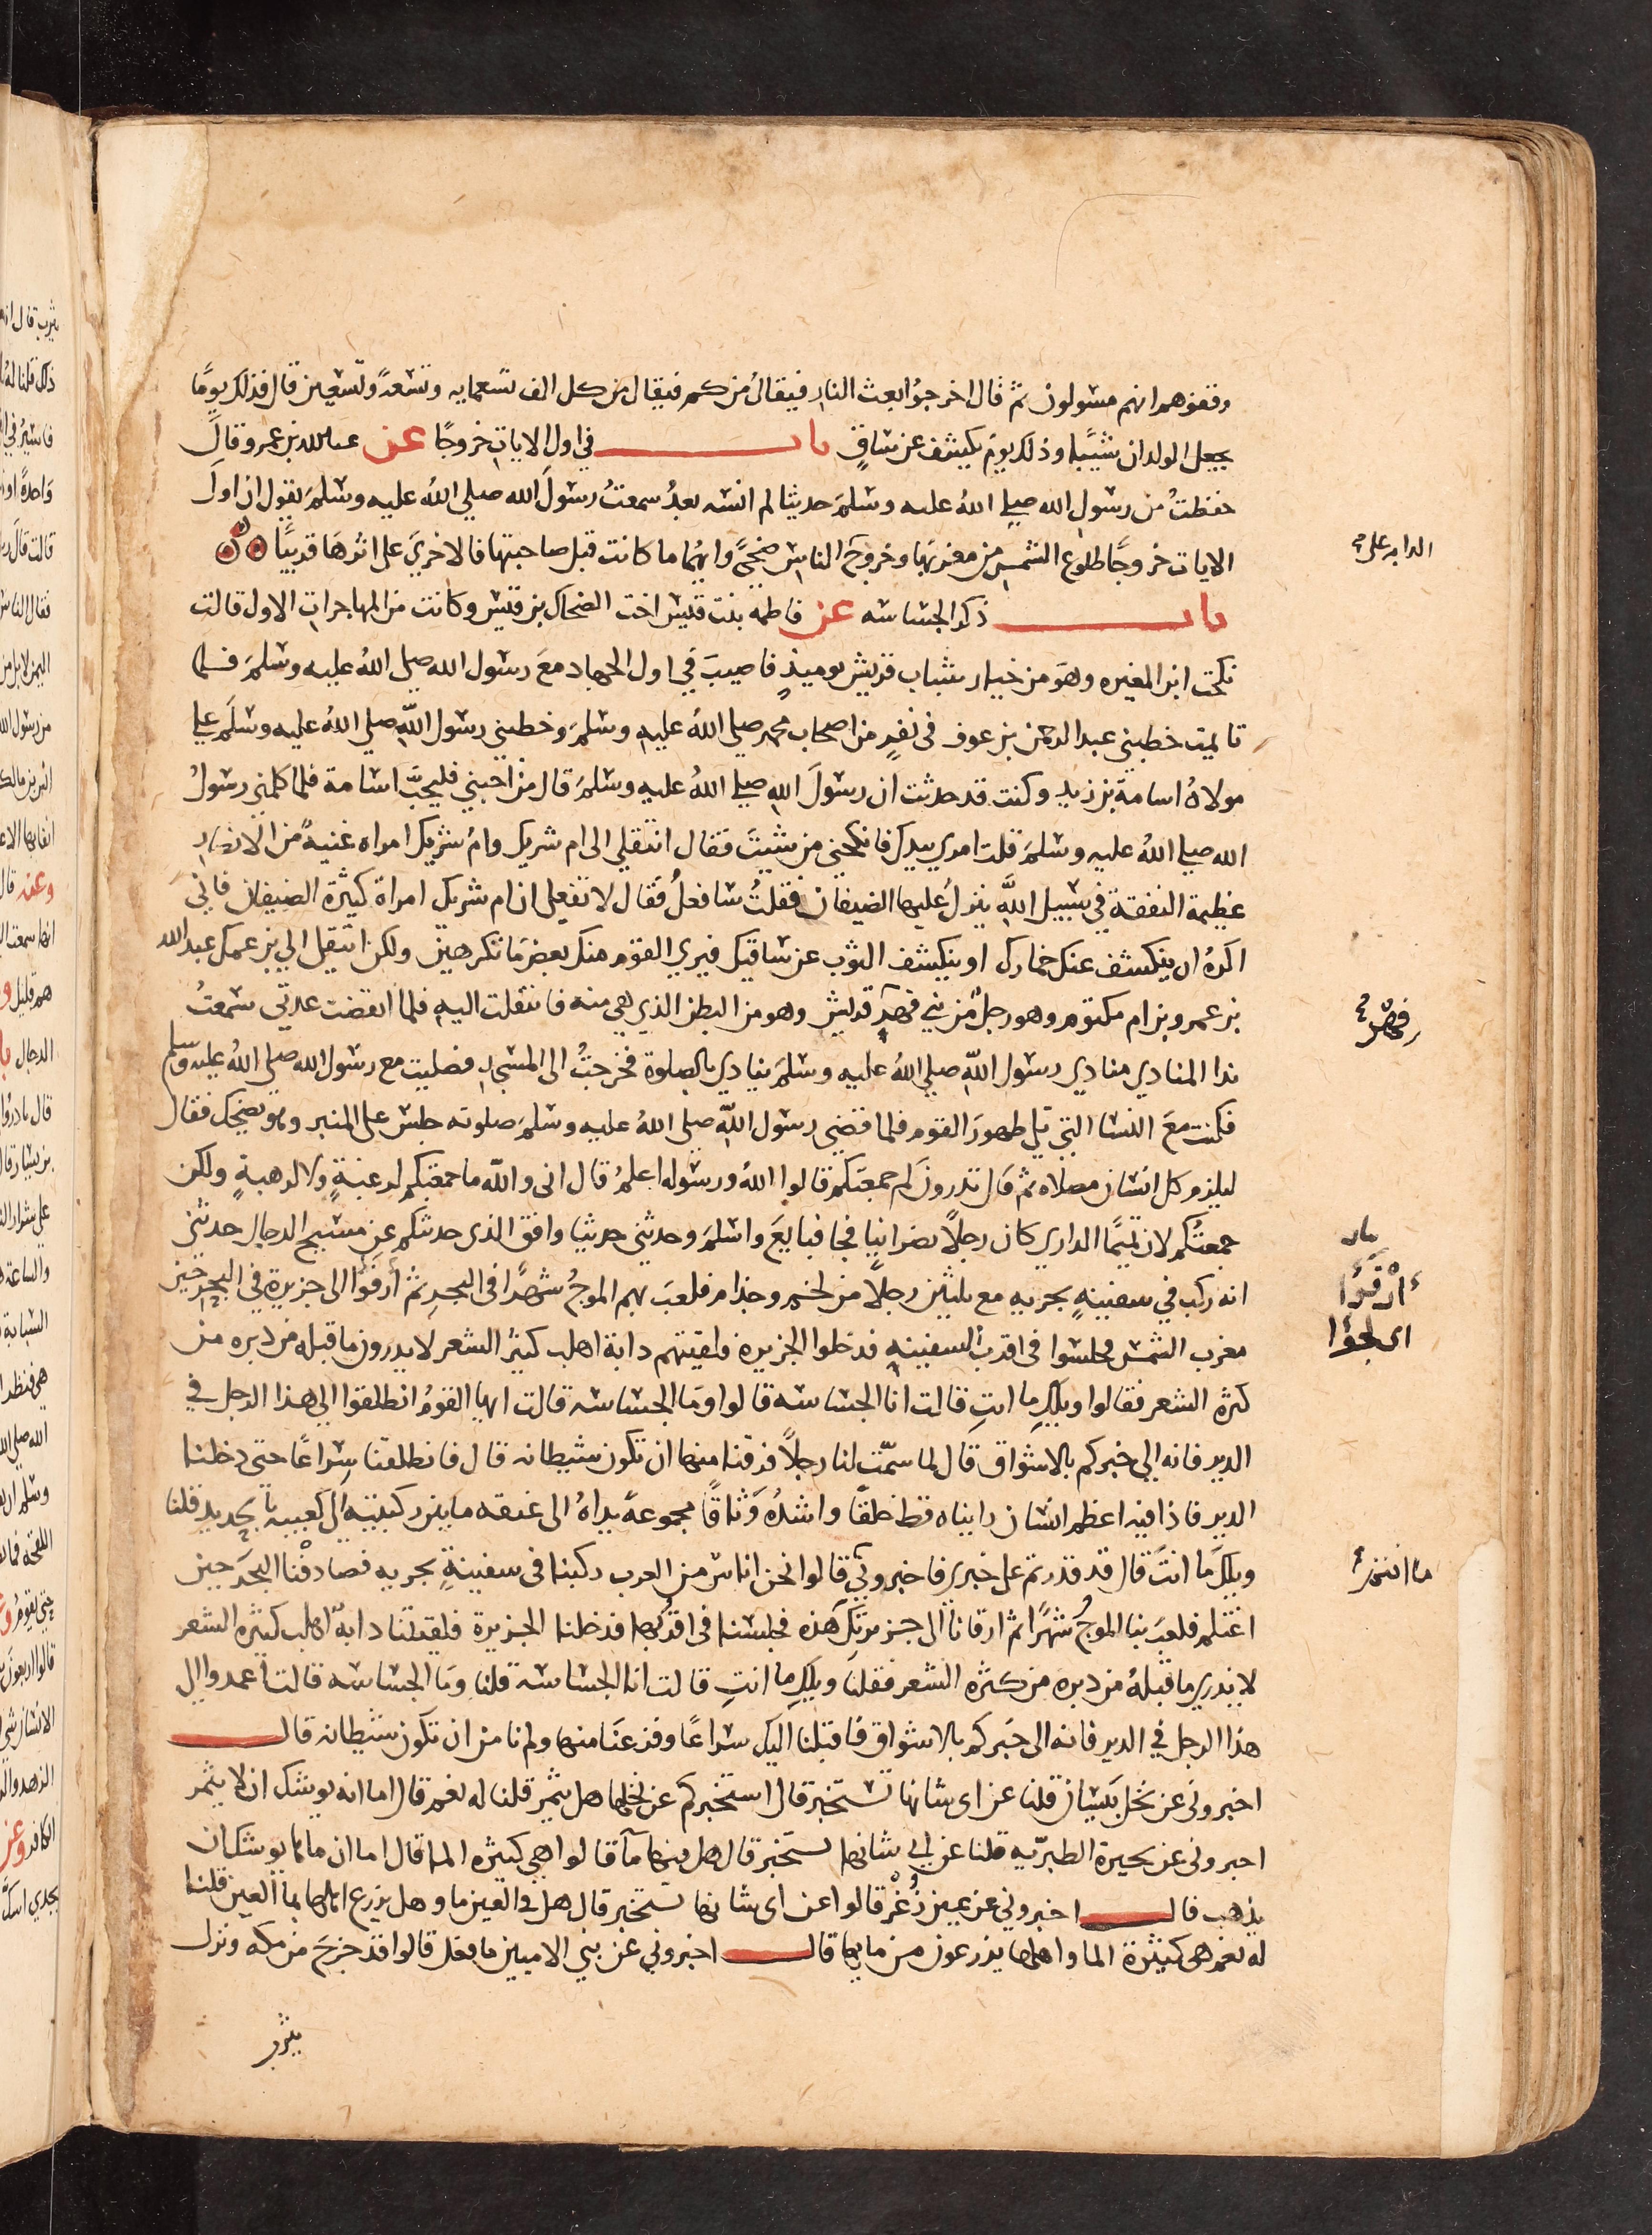 وقفوهم انهم مسولون ثم قال اخرجوا بعث النار فيقال من كم فيقال من كل الف تسعمايه وتسعةً وتسعين قال فذلك يومًا
يجعل الولدان شيبًا وذلك يوم يكشف عن ساقٍ باب في اول الايات خروجًا عن عبدالله بن عمرو قال
حفظتُ من رسول الله صلي اللهُ عليه وسَلمَ حديثا لم انسه بعدُ سمعتُ رسولَ الله صلي اللهُ عليه وسَلمَ يقول ان اول
الايات خروجًا طلوع الشمس من مغربها وخروج الناس ضحيً وايهما ما كانت قبل صاحبتها فالاخري على اثرها قريبًا
باب ذكر الجساسه عن فاطمه بنت قيس اخت الضحاك بن قيس وكانت من المهاجرات الاول قالت
نكحت ابن المغيره وهو من خيار شباب قريش يوميذٍ فاصيبَ في اول الجهاد معَ رسول الله صلى اللهُ عليه وسَلمَ فلما
تايمت خطبني عبد الرحمن بن عوف فى نفرٍ من اصحاب محمد صلي اللهُ عليه وسَلمَ وخطبني رسول اللّه صلي اللهُ عليه وسَلمَ علي
مولاهُ اسامة بن زيد وكنت قد حدثت ان رسولَ الله صلي اللهُ عليه وسَلمَ قال من احبني فليحبَّ اسامة فلما كلمني رسولُ
الله صلي اللهُ عليه وسَلمَ قلت امري بيدك فانكحني من شيتَ فقال انتقلي الى ام شريك وامُ شريك امراه غنيةً من الانصار
عظيمة النفقة في سبيل اللَّه ينزلُ عليها الضيفان فقلتُ سافعلُ فقال لا تفعلي ان ام شريك امراة كثيرة الضيفان فاني
اكرهُ ان ينكشف عنك خمارك او ينكشف الثوب عن ساقيك فيري القوم منك بعض ما تكرهين ولكن انتقلي الي بن عمك عبد الله
بن عمرو بن ام مكتوم وهو رجلٌ من بني فهرٍ قريش وهو من البطن الذي هي منه فانتقلت اليه فلما انقضت عدتي سمعتُ
ندا المنادي منادي رسول اللّه صلي اللهُ عليه وسَلمَ ينادي بالصلوة فخرجتُ الى المسجد فصليت مع رسول الله صلي اللهُ عليه وسلم
فكنت معَ النسا التي تلي ظهورَ القوم فلما قضي رسول اللّه صلي اللهُ عليه وسَلمَ صلوته جلسَ على المنبر وهو يضحك فقال
ليلزم كل انسان مصلاه ثم قال تدرونَ لم جمعتكم قالوا اللهُ ورسوله اعلمُ قال انى واللّه ما جمعتكم لرغبةٍ ولا لرهبةٍ ولكن
جمعتُكم لان تميمًا الداري كان رجلاً نصرانيا فجا فبايعَ واسلمَ وحدثني حديثا وافق الذي حدثتكم عن مسيح الدجال حدثني
انه ركب في سفينةٍ بحريه مع ثلثين رجلاً من لخم وجذام فلعبَ بهم الموجُ شهرًا فى البحرِ ثم ارفَوُا الى جزيرة في البحر حين
مغرب الشمس فجلسوا فى اقرب السفينه فدخلوا الجزيره فلقيتهم دابة اهلب كثير الشعر لا يدرون ما قبله من دبره من
كثرة الشعر فقالوا ويلكِ ما انتِ قالت انا الجساسه قالوا وما الجساسه قالت ايها القومُ انطلقوا الى هذا الرجل في
الدير فانه الي خبركم بالاشواق قال لما سمّت لنا رجلاً فرقنا منها ان تكون شيطانه قال فانطلقنا سِراعًا حتى دخلنا
الدير فاذا فيه اعظم انسان رايناه قط خلقًا واشدُه وَثاقًا مجموعة يداهُ الى عنقه ما بين ركبتيه الى كعبيه بالحديد قلنا
ويلك ما انتَ قال قد قدرتم على خبري فاخبروني قالوا نحن اناس من العرب ركبنا فى سفينةٍ بحريه فصادفْنا البحرَ حين
اغتلم فلعبَ بنا الموجُ شهرًا ثم ارفانا الى جزيرتِك هذه فجلسنا فى اقرُبها فدخلنا الجزيرة فلقيتنا دابةٌ اهلب كثيره الشعر
لا يدري ما قبلهُ من دبره من كثره الشعر فقلنا ويلكِ ما انتِ قالت انا الجساسه قلنا وما الجساسه قالت اعمدوا الي
هذا الرجل في الدير فانه الى خبركم بالاشواق فاقبلنا اليك سراعًا وفزعنَا منها ولم نامن ان تكون شيطانه قال
اخبرونى عن نخل بَيسان قلنا عن اى شانها تستخبر قال استخبركم عن نخلها هل يثمر قلنا له نعم قال اما انه يوشك ان لا يثمر
اخبرونى عن بحيرة الطبريّه قلنا عن اي شانها تستخبر قال هل فيها مآ قالوا هي كثيره الما قال اما ان ماها يوشك ان
يذهب قال اخبروني عن عين زُغَر قالوا عن اى شانها تستخبر قال هل في العين ما وهل يزرع اهلها بما العين قلنا
له نعم هى كثيرة الما واهلها يزرعون من مايها قال اخبروني عن بني الاميين ما فعل قالوا قد خرجَ من مكه ونزل
يثرب
الدابه على
فهر
بيان
أَرْفَؤُا
اى لجؤا
ما انتم